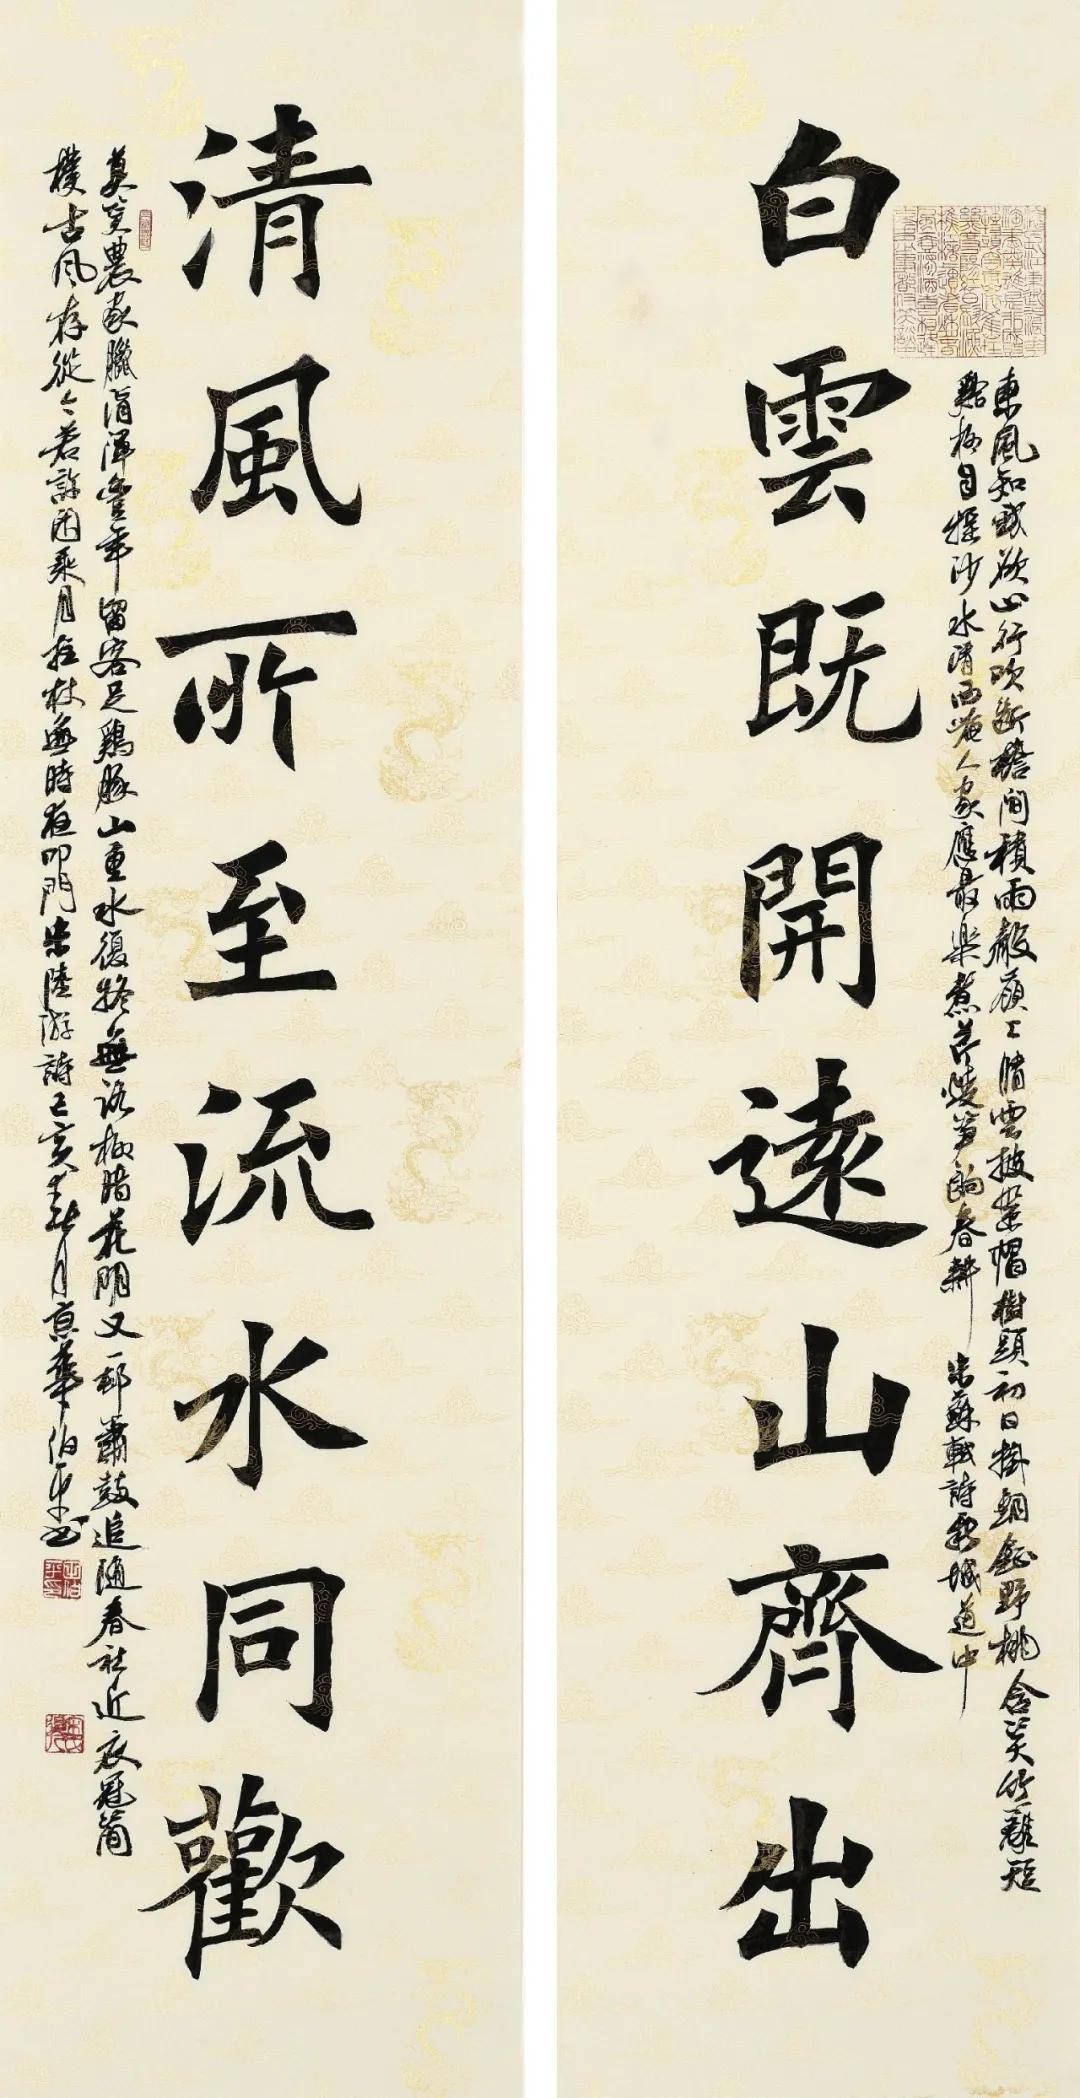 東風知我欲山行吹斷檐間積雨聲嶺上晴雲披絮帽樹頭初日掛銅鉦野桃含笑竹籬短
谿柳自搖沙水清西崦人家應最樂煮芹燒筍餉春耕 宋蘇軾詩新城道中
白雲既開遠山齊出
清風所至流水同歡
莫笑農家臘酒渾豐年留客足鷄豚山重水復疑無路柳暗花明又一邨簫鼓追隨春社近衣冠簡
樸古風存從今若許閑乘月拄杖無時夜叩門宋陸游詩己亥年秋月京華伯平書